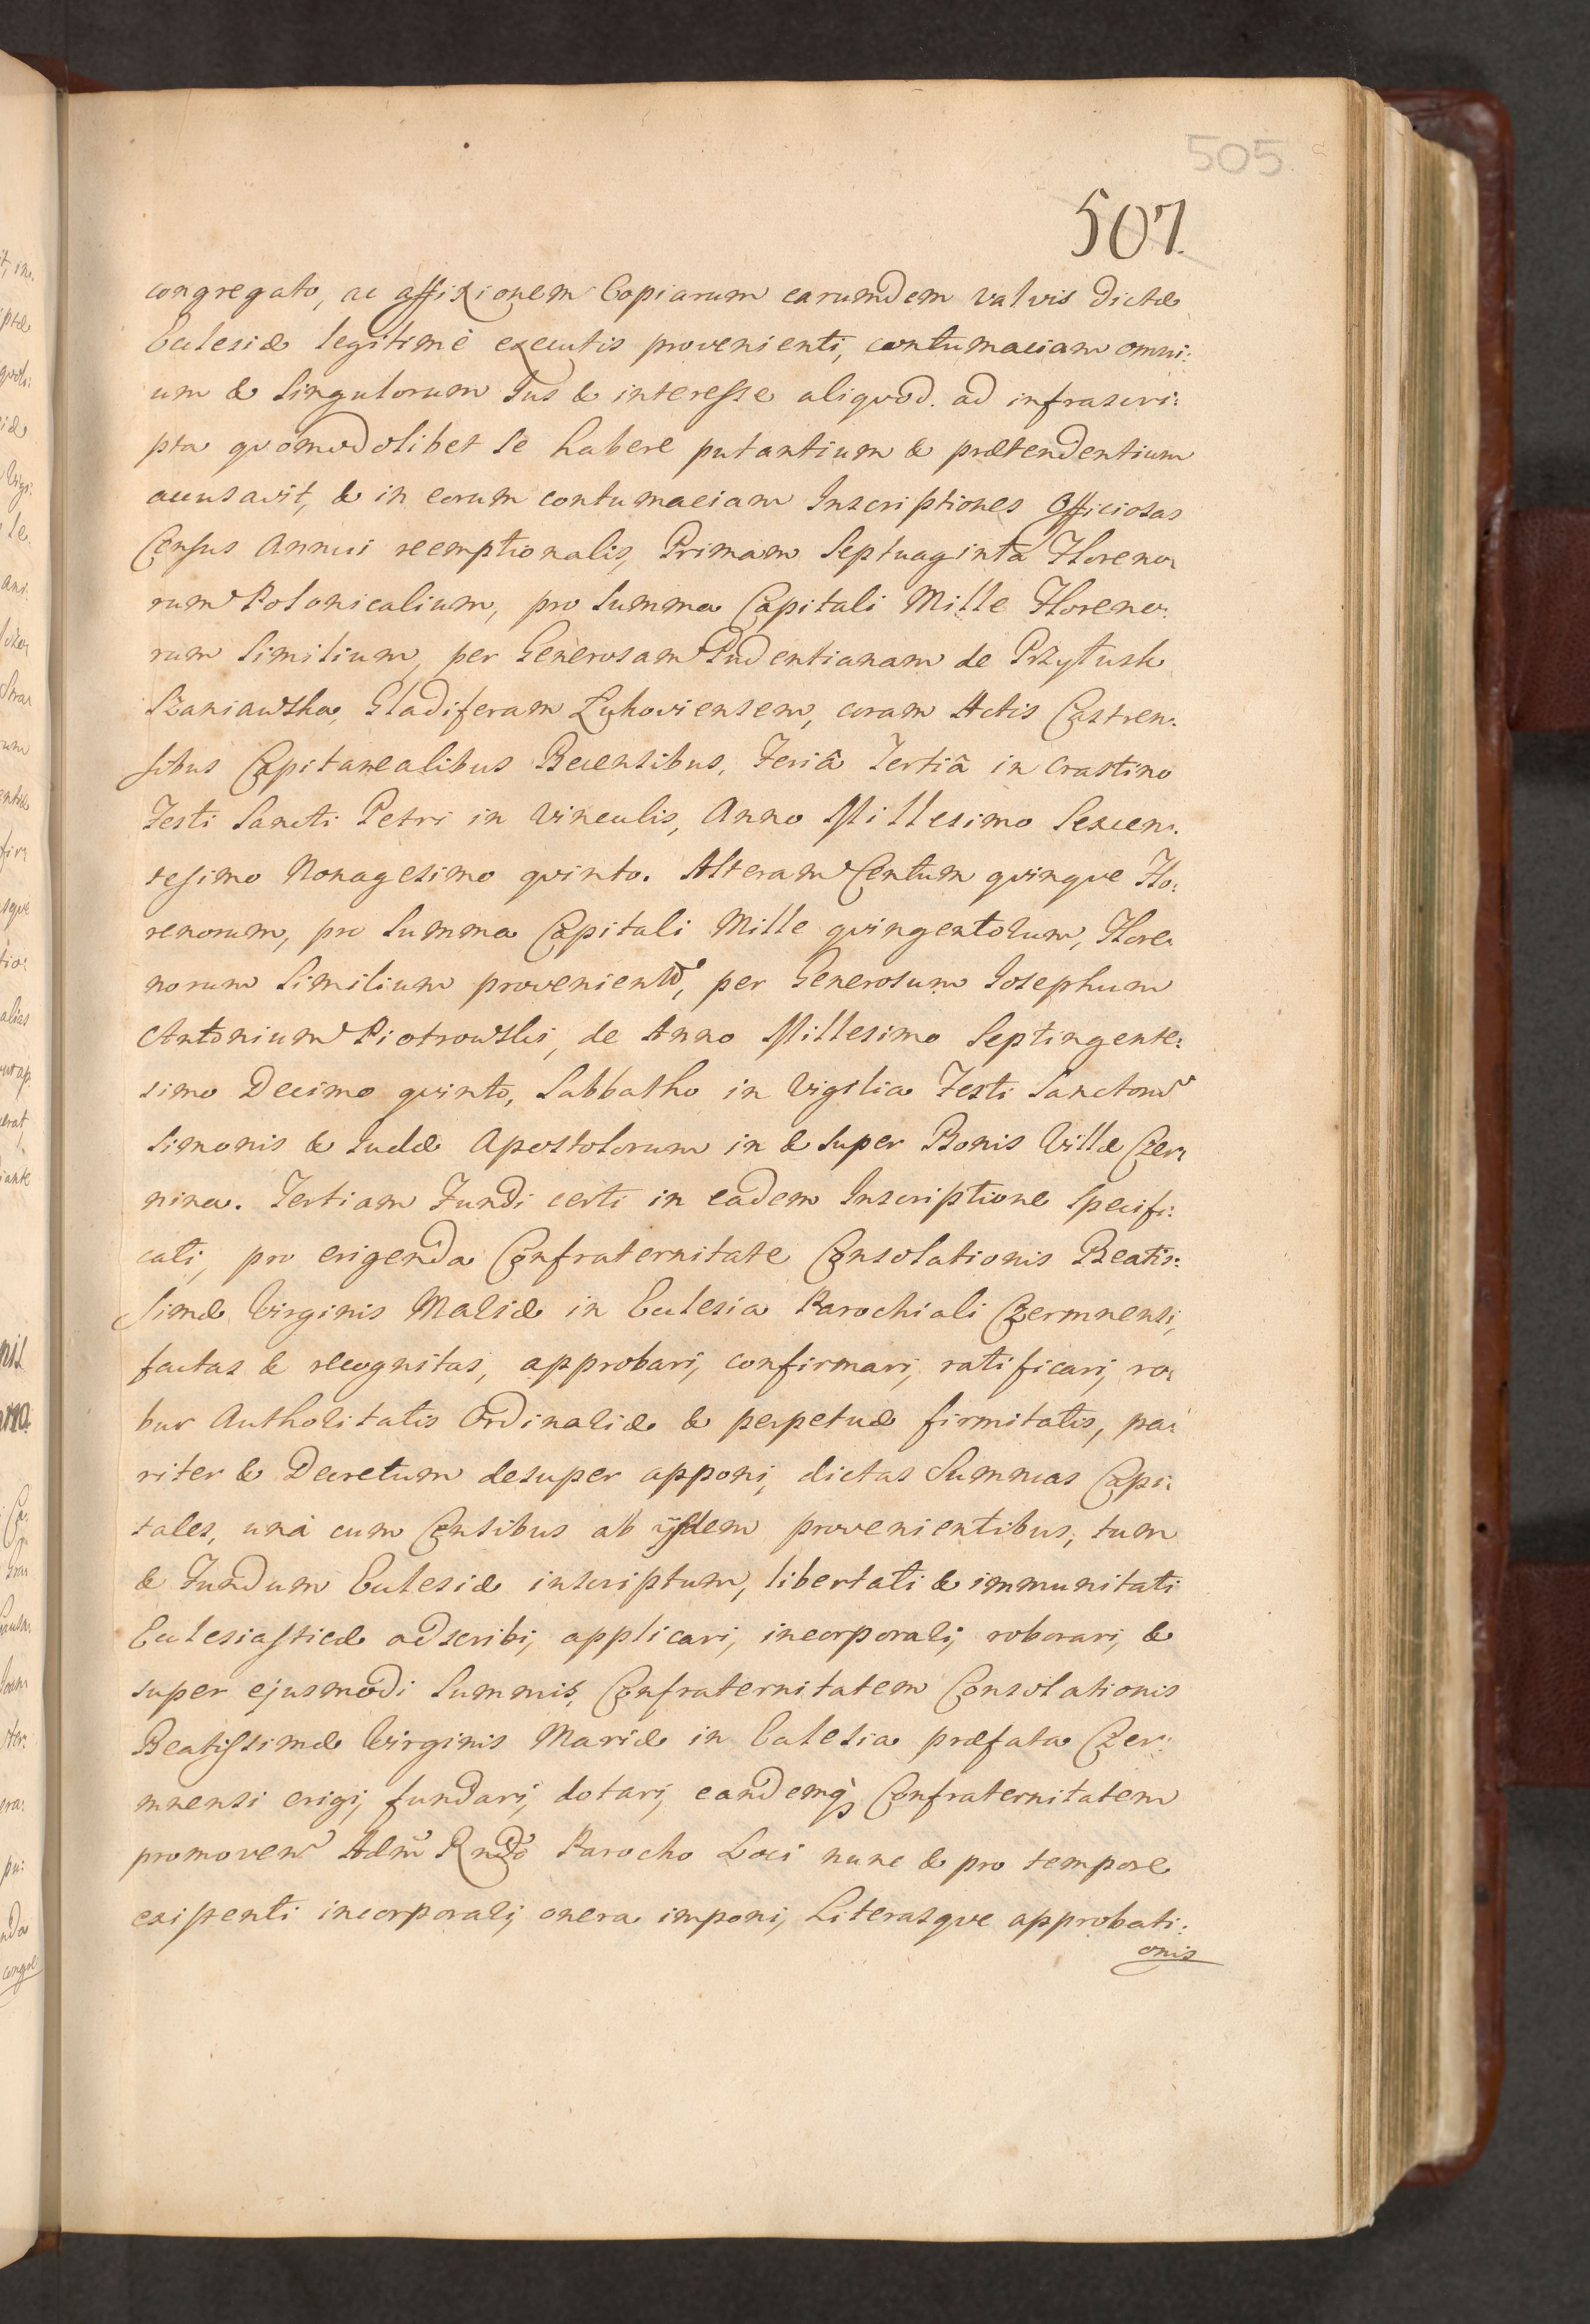 505
507.
congregato, ac affixionem Copiarum earumdem valvis dictæ
Ecclesiæ legitimè executis provenienti, contumaciam omni:
um & singulorum Jus & interesse aliquod. ad infrascri:
pta quomodolibet se habere putantium & prætendentium
accusavit, & in eorum contumaciam Inscriptiones Officiosas
Census Annui reemptionalis, Primam Septuaginta Floreno:
rum Polonicalium, pro Summa Capitali Mille Floreno:
rum Similium, per Generosam Pudentianam de Przyłusk
Szaniawska, Gladiferam Łukoviensem, coram Actis Castren:
sibus Capitanealibus Becensibus, Feriâ Tertiâ in Crastino
Festi Sancti Petri in Vinculis, Anno Millesimo Sexcen:
tesimo Nonagesimo quinto. Alteram Centum quinque Flo:
renorum, pro Summa Capitali Mille quingentorum, Flore:
norum Similium provenient, per Generosum Josephum
Antonium Piotrowski, de Anno Millesimo Septingente:
simo Decimo quinto, Sabbatho in Vigilia Festi Sanctorum
Simonis & Judæ Apostolorum in & super Bonis Villæ Czer:
mina. Tertiam Fundi certi in eadem Inscriptione Specifi:
cati, pro erigenda Confraternitate Consolationis Beatis:
simæ Virginis Mariæ in Ecclesia Parochiali Czermnensi,
factas & recognitas, approbari, confirmari, ratificari, ro:
bur Authoritatis Ordinariæ & perpetuæ firmitatis, pa:
riter & Decretum desuper apponi, dictas Summas Capi:
tales, unà cum Censibus ab ijsdem provenientibus, tum
& Fundum Ecclesiæ inscriptum, libertati & immunitati
Ecclesiasticæ adscribi, applicari, incorporari, roborari, &
super ejusmodi Summis, Confraternitatem Consolationis
Beatissimæ Virginis Mariæ in Ecclesia præfata Czer:
mnensi erigi, fundari, dotari, eandemq Confraternitatem
promoven Adm Rndo Parocho Loci nunc & pro tempore
existenti incorporari, onera imponi, Literasque approbati:
onis